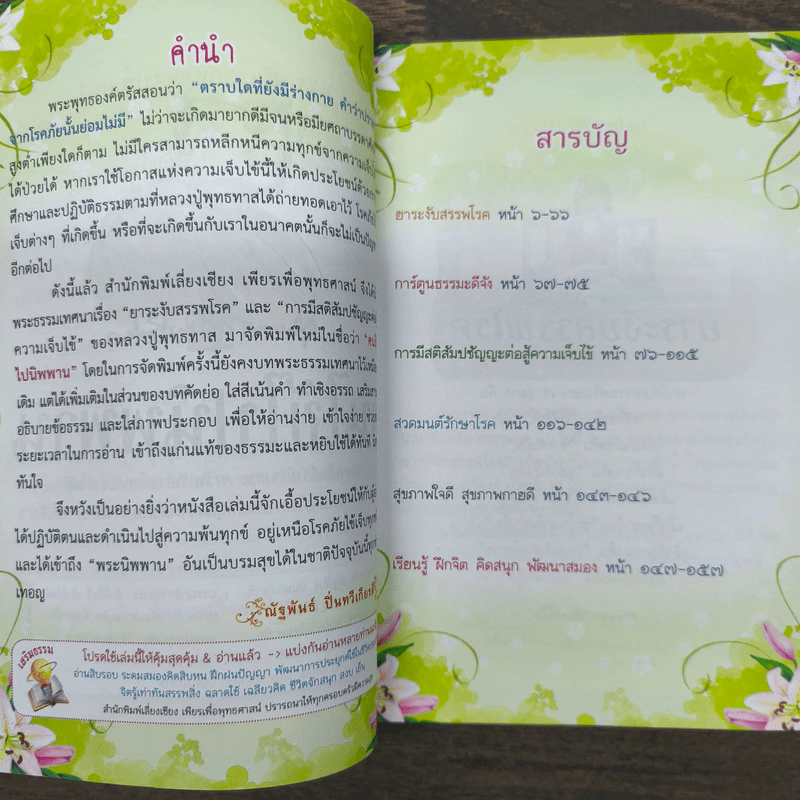 คำนำ
พระพุทธองค์ตรัสสอนว่า “ตราบใดที่ยังมีร่างกาย คำว่าปรา
จากโรคภัยนั้นย่อมไม่มี” ไม่ว่าจะเกิดมายากดีมีจนหรือมียศถาบรรดาศั
สูงต่ำเพียงใดก็ตาม ไม่มีใครสามารถหลีกหนีความทุกข์จากความเจ็บไ
ได้ป่วยได้ หากเราใช้โอกาสแห่งความเจ็บไข้นี้ให้เกิดประโยชน์ด้วย
ศึกษาและปฏิบัติธรรมตามที่หลวงปู่พุทธทาสได้ถ่ายทอดเอาไว้ โรคภัย
เจ็บต่างๆ ที่เกิดขึ้น หรือที่จะเกิดขึ้นกับเราในอนาคตนั้นก็จะไม่เป็นปัญ
อีกต่อไป
ดังนี้แล้ว สำนักพิมพ์เลี่ยงเชียง เพียรเพื่อพุทธศาสน์ จึงได้
พระธรรมเทศนาเรื่อง “ยาระงับสรรพโรค” และ “การมีสติสัมปชัญญะต่อ
ความเจ็บไข้” ของหลวงปู่พุทธทาส มาจัดพิมพ์ใหม่ในชื่อว่า
ไปนิพพาน” โดยในการจัดพิมพ์ครั้งนี้ยังคงบทพระธรรมเทศนาไว้เหมือ
เดิม แต่ได้เพิ่มเติมในส่วนของบทคัดย่อ ใส่สีเน้นคำ ทำเชิงอรรถ เสริม
อธิบายข้อธรรม และใส่ภาพประกอบ เพื่อให้อ่านง่าย เข้าใจง่าย ช่วย
ระยะเวลาในการอ่าน เข้าถึงแก่นแท้ของธรรมะและหยิบใช้ได้ทันที
ทันใจ
จึงหวังเป็นอย่างยิ่งว่าหนังสือเล่มนี้จักเอื้อประโยชน์ให้กับผู้
ได้ปฏิบัติตนและดำเนินไปสู่ความพ้นทุกข์ อยู่เหนือโรคภัยไข้เจ็บทุก
และได้เข้าถึง “พระนิพพาน” อันเป็นบรมสุขได้ในชาติปัจจุบันนี้ทุก
เทอญ
ณัฐพันธ์ ปิ่นทวีเกียรติ์
เสริมธรรม
โปรดใช้เล่มนี้ให้คุ้มสุดคุ้ม & อ่านแล้ว -> แบ่งกันอ่านหลายท่าน
อ่านสิบรอบ ระดมสมองคิดสิบหน ฝึกฝนปัญญา พัฒนาการประยุกต์ใช้ในชีวิต
จิตรู้เท่าทันสรรพสิ่ง ฉลาดใช้ เฉลียวคิด ชีวิตจักสนุก สงบ เย็น
สำนักพิมพ์เลี่ยงเชียง เพียรเพื่อพุทธศาสน์ ปรารถนาให้ทุกครอบครัวมีความสุข
สารบัญ
ยาระงับสรรพโรค หน้า ๖-๖๖
การ์ตูนธรรมะดีจัง หน้า ๖๗-๗๕
การมีสติสัมปชัญญะต่อสู้ความเจ็บไข้ หน้า ๗๖-๑๑๕
สวดมนต์รักษาโรค หน้า ๑๑๖-๑๔๒
สุขภาพใจดี สุขภาพกายดี หน้า ๑๔๓-๑๔๖
เรียนรู้ ฝึกจิต คิดสนุก พัฒนาสมอง หน้า ๑๔๗-๑๕๗